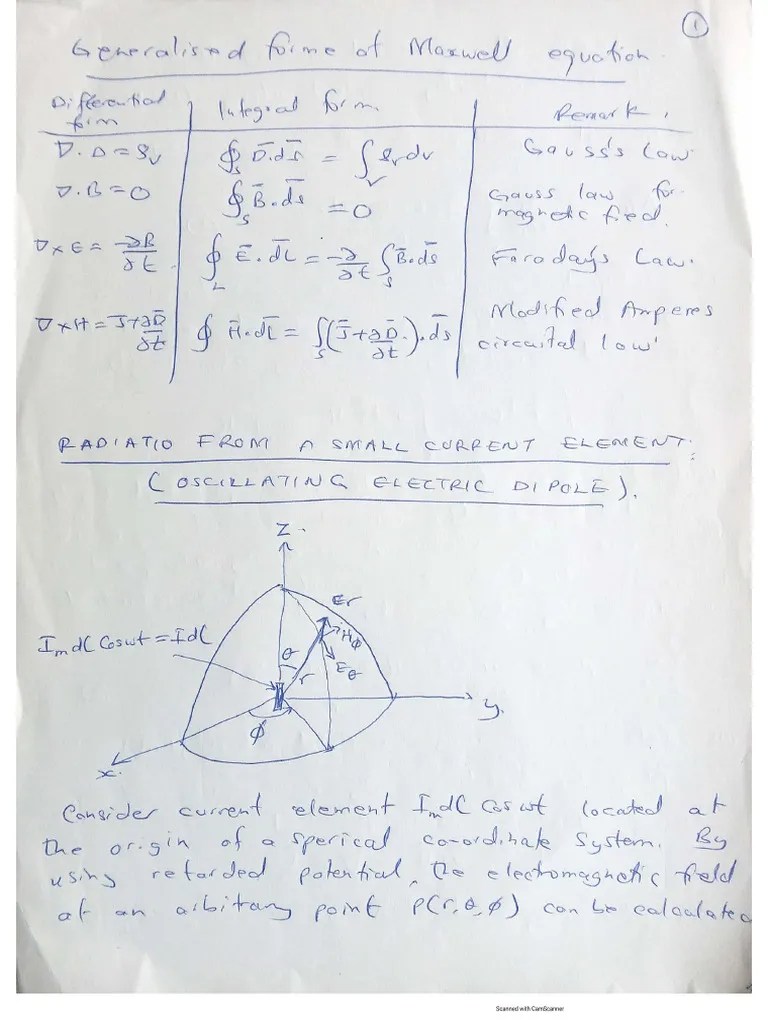 1
Generalised forme of Maxwell equation.
Differential form | Integral form. | Remark.
∇.D = ρv | ∮s D̄.ds̄ = ∫v ρv dv | Gauss's Low
∇.B = 0 | ∮s B̄.ds̄ = 0 | Gauss law for magnetic field.
∇×E = -∂B/∂t | ∮L Ē.dL̄ = -∂/∂t ∫s B̄.ds̄ | Faraday's Law.
∇×H = J̄+∂D̄/∂t | ∮ H̄.dL̄ = ∫s (J̄+∂D̄/∂t).ds̄ | Modified Amperes circuital low
RADIATIO FROM A SMALL CURRENT ELEMENT:
(OSCILLATING ELECTRIC DIPOLE).
Z.
Er
Hφ
Im dL Coswt = IdL
θ
Eθ
r
y.
φ
x.
Consider current element Im dL Coswt located at
the origin of a sperical co-ordinate system. By
using retarded potential, the electromagnetic field
at an arbitrary point P(r,θ,φ) can be calculated
Scanned with CamScanner